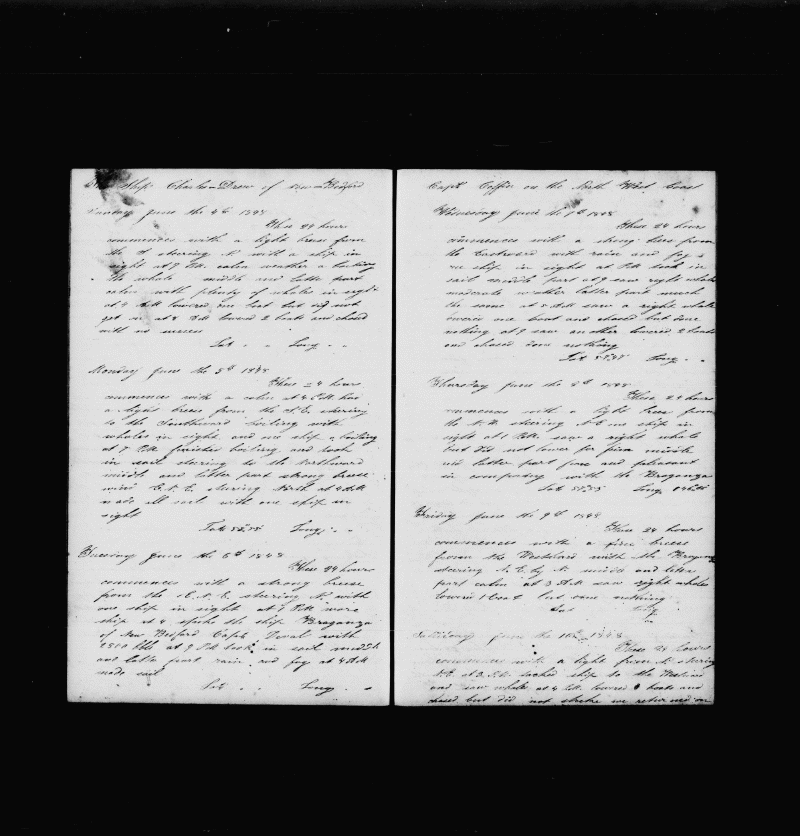 Ship Charles Drew of New Bedford
Sunday June the 4th 1848
These 24 hours
commences with a light breese from
the S steering N with a ship in
sight at 7 P.M. calm weather a boiling
the whale middle and latter part
calm with plenty of whales in sight
at 4 A.M. lowered one boat but did not
get in at 8 A.M. lowered 2 boats and chased
with no success
Lat Long
Monday June the 5th 1848
These 24 hours
commences with a calm at 4 P.M. has
a light breese from the N.E. steering
to the Southward boiling with
whales in sight and one ship a boiling
at 7 P.M. finished boiling and took
in sail steering to the Northward
middle and latter part strong breese
wind E.N.E. steering North at 4 A.M.
made all sail with one ship in
sight
Lat Long
Tuesday June the 6th 1848
These 24 hours
commences with a strong breese
from the E.N.E. steering N. with
one ship in sight at 7 P.M. more
ship at 8 spoke the ship Braganza
of New Bedford Capt Deval with
bbl at 9 P.M. took in sail middle
and latter part rain and fog at 4 A.M.
made sail
Lat Long
Capt Coffin on the North West Coast
Wednesday June the 1848
These 24 hours
commences with a strong breese from
the Eastward with rain and fog
one ship in sight at P.M. took in
sail middle part at 9 saw right whale
moderate weather latter part much
the same at 5 A.M. saw a right whale
lowered one boat and chased but done
nothing at 9 saw another lowered 2 boats
and chased done nothing
Lat Long
Thursday June the 8th 1848
These 24 hours
commences with a light breese from
the steering N.E. one ship in
sight at 1 P.M. saw a right whale
but did not lower for him middle
and latter part fine and pleasant
in company with the Braganza
Lat Long
Friday June the 9th 1848
These 24 hours
commences with a fine breese
from the Westward with the Braganza
steering N.E. by N. middle and latter
part calm at 3 A.M. saw right whales
lowered 1 boat but done nothing
Lat Long
Saturday June the 10th 1848
These 24 hours
commences with a light from N. steering
at 3 P.M. tacked ship to the Westward
and saw whale at 4 P.M. lowered boats and
chased but did not strike we returned on